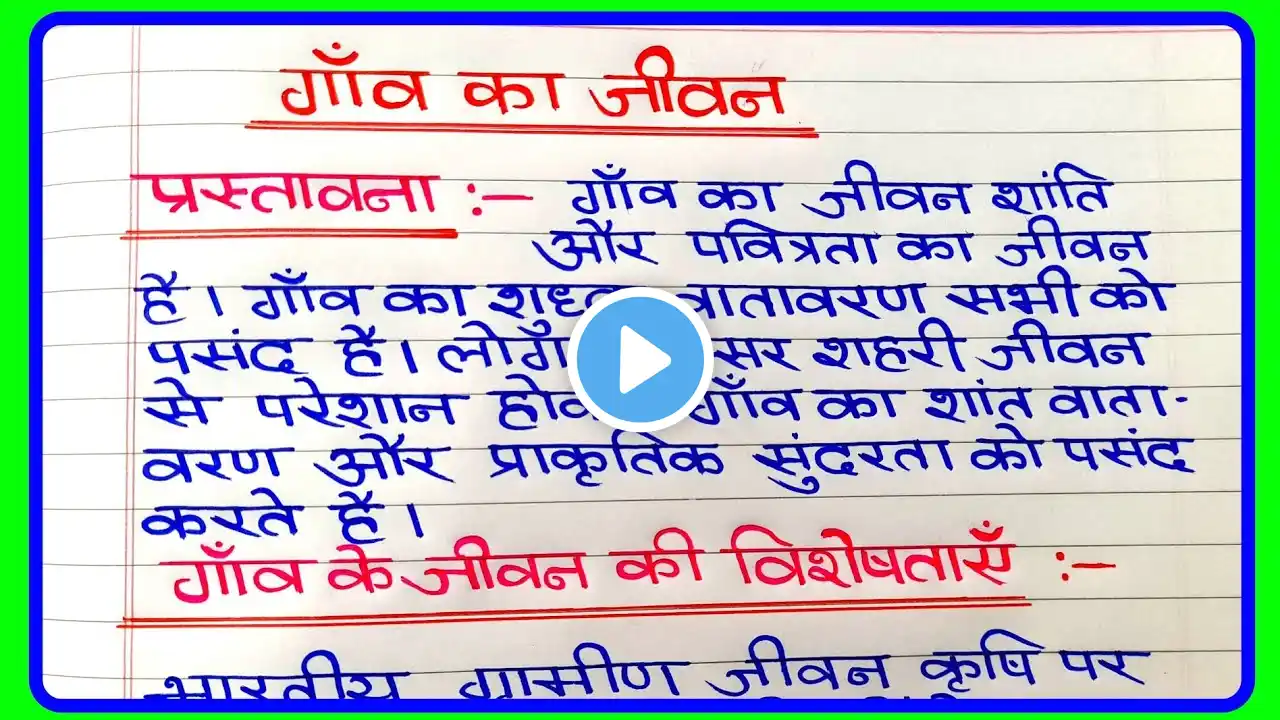 गाँव का जीवन
प्रस्तावना :- गाँव का जीवन शांति
और पवित्रता का जीवन
है। गाँव का वातावरण सभी को
पसंद है। शहरी जीवन
से परेशान गाँव का शांत वाता-
वरण और प्राकृतिक सुंदरता को पसंद
करते हैं।
गाँव के जीवन की विशेषताएँ :-
भारतीय ग्रामीण जीवन कृषि पर